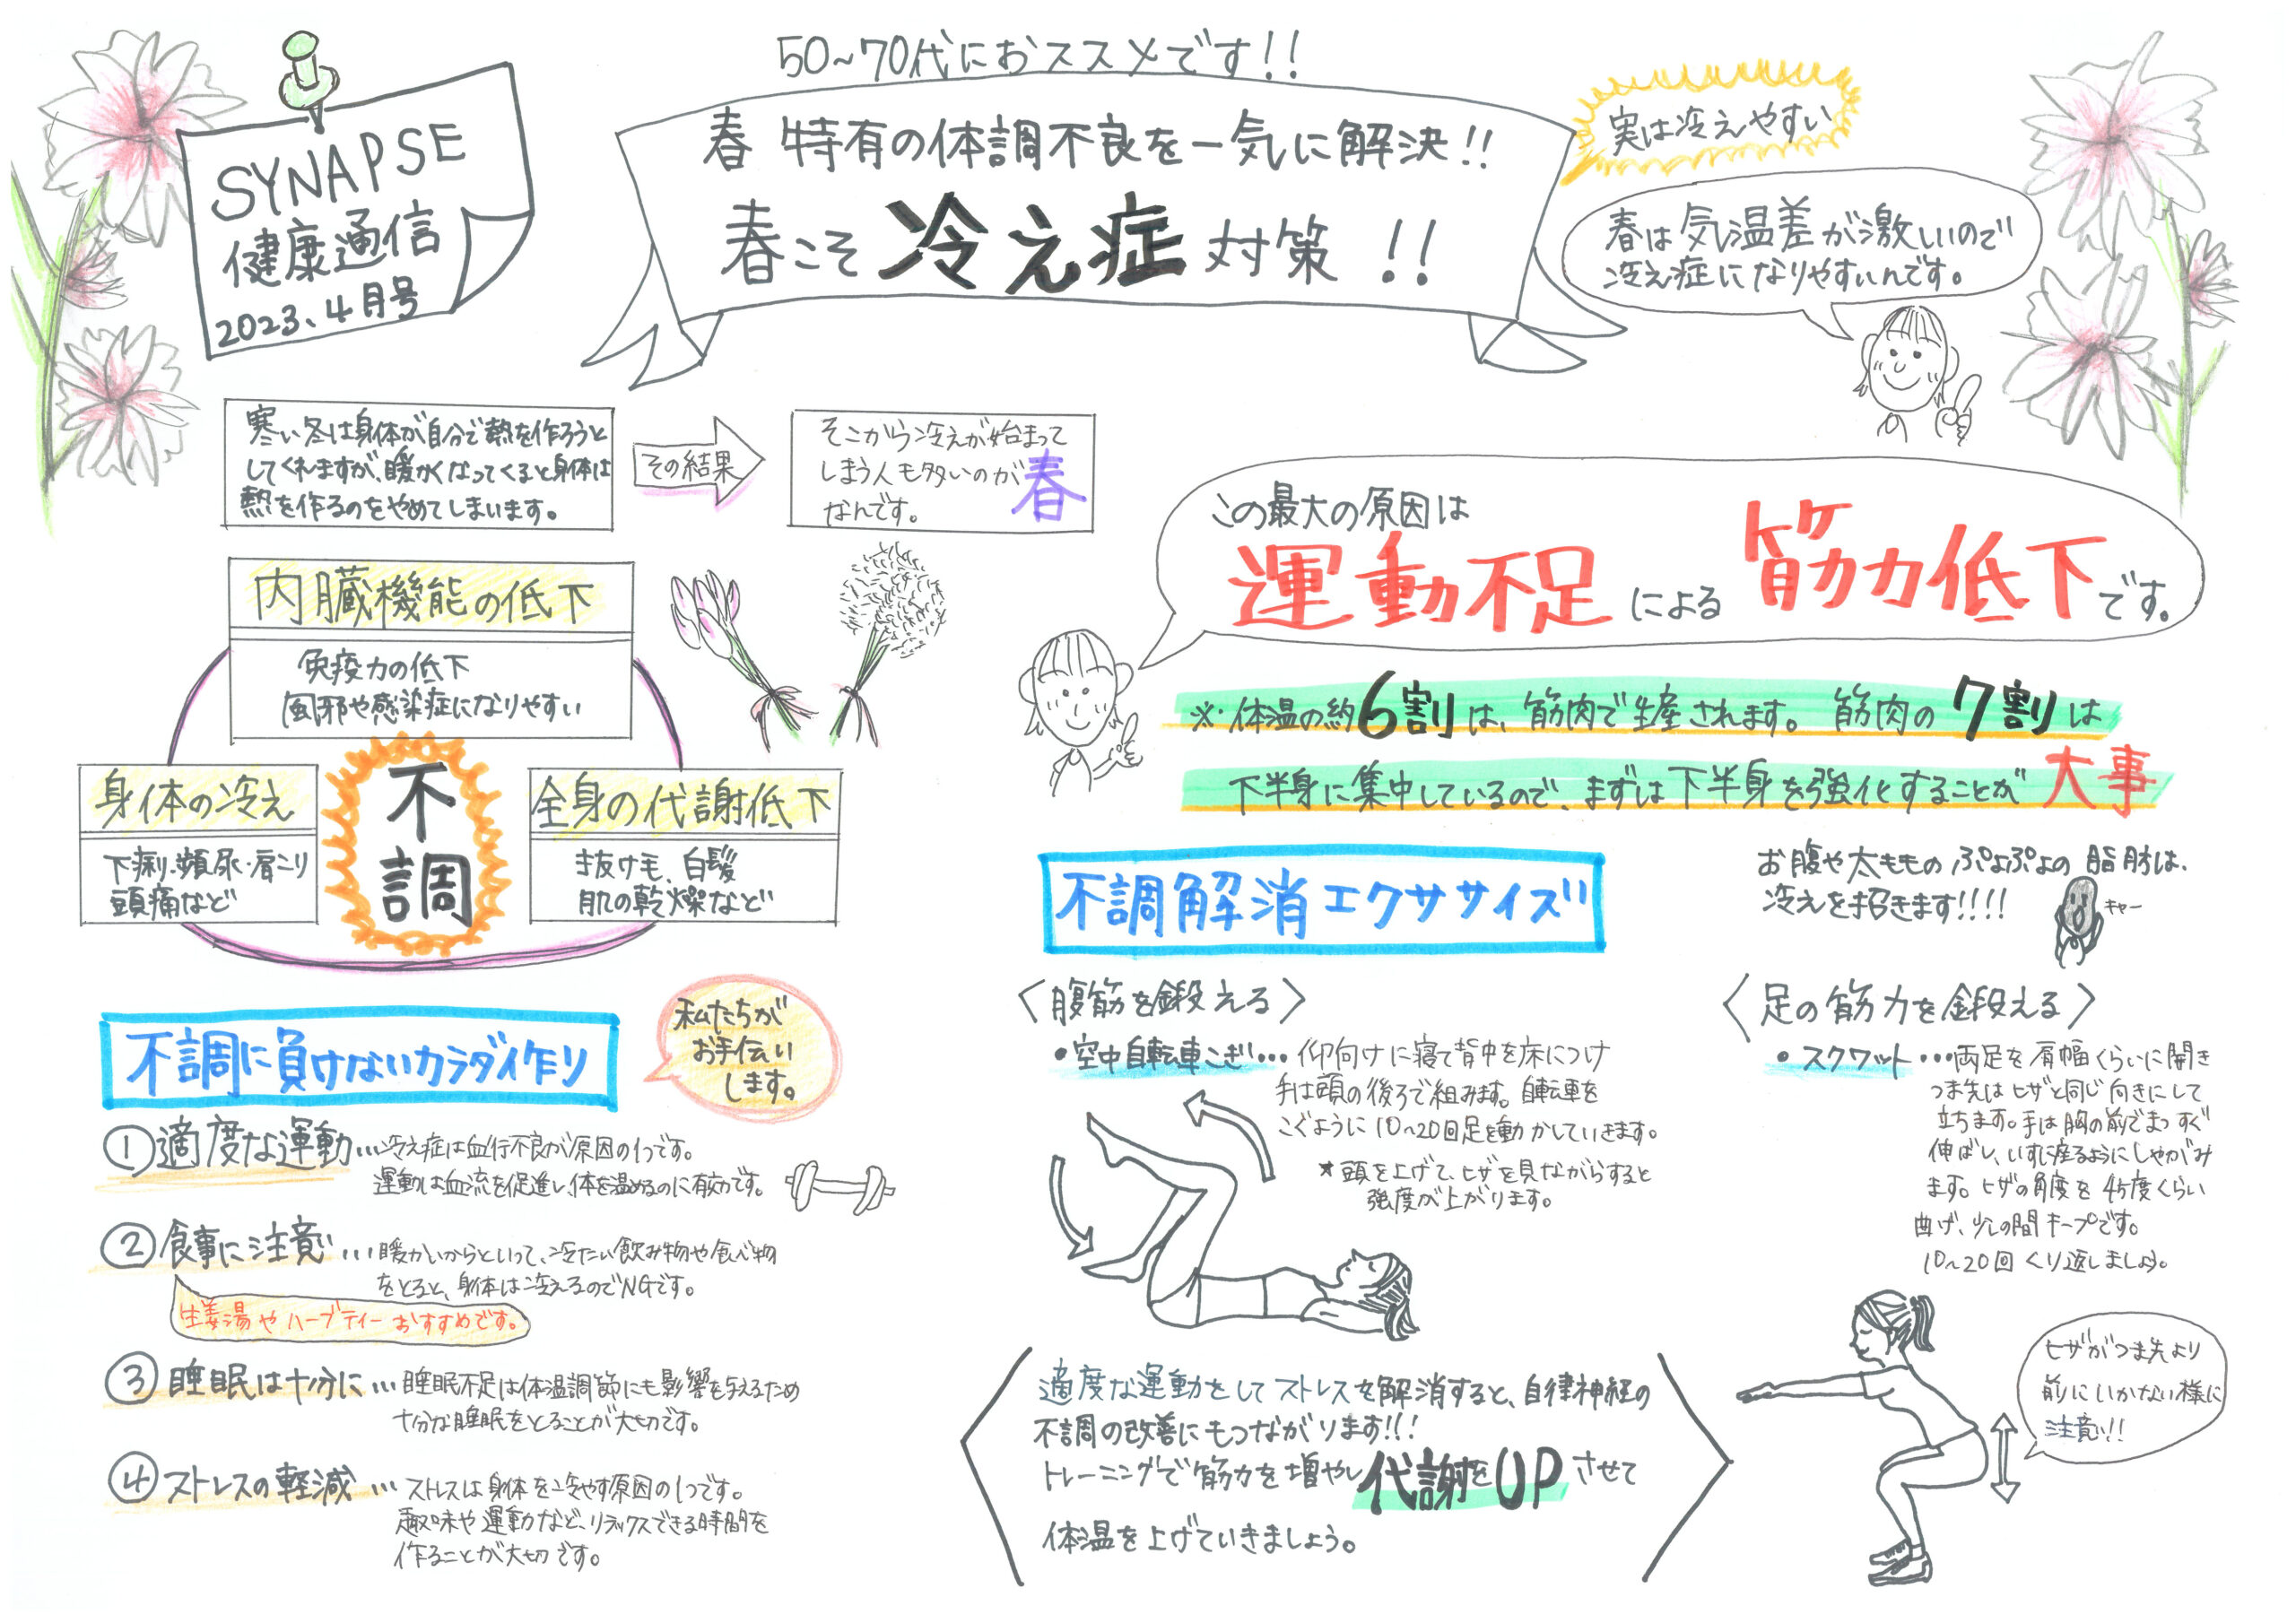 50~70代におススメです!!
SYNAPSE
健康通信
2023、4月号
春 特有の体調不良を一気に解決!!
春こそ 冷え症 対策 !!
実は冷えやすい
春は気温差が激しいので
冷え症になりやすいんです。
寒い冬は身体が自分で熱を作ろうと
してくれますが、暖かくなってくると身体は
熱を作るのをやめてしまいます。
その結果
そこから冷えが始まって
しまう人も多いのが 春
なんです。
この最大の原因は
運動不足 による 筋力低下 です。
※体温の約6割は、筋肉で生産されます。筋肉の7割は
下半身に集中しているので、まずは下半身を強化することが 大事
内臓機能の低下
免疫力の低下
風邪や感染症になりやすい
身体の冷え
下痢・頻尿・肩こり
頭痛など
不調
全身の代謝低下
抜け毛、白髪
肌の乾燥など
お腹や太もものぷよぷよの脂肪は、
冷えを招きます!!!!
キャー
不調に負けないカラダ作り
私たちが
お手伝い
します。
①適度な運動…冷え症は血行不良が原因の1つです。
運動は血流を促進し、体を温めるのに有効です。
②食事に注意…暖かいからといって、冷たい飲み物や食べ物
をとると、身体は冷えるのでNGです。
生姜湯やハーブティーおすすめです。
③睡眠は十分に…睡眠不足は体温調節にも影響を与えるため
十分な睡眠をとることが大切です。
④ストレスの軽減…ストレスは身体を冷やす原因の1つです。
趣味や運動など、リラックスできる時間を
作ることが大切です。
不調解消エクササイズ
〈腹筋を鍛える〉
・空中自転車こぎ…仰向けに寝て背中を床につけ
手は頭の後ろで組みます。自転車を
こぐように10~20回足を動かしていきます。
★頭を上げて、ヒザを見ながらすると
強度が上がります。
〈足の筋力を鍛える〉
・スクワット…両足を肩幅くらいに開き
つま先はヒザと同じ向きにして
立ちます。手は胸の前でまっすぐ
伸ばし、いすに座るようにしゃがみ
ます。ヒザの角度を45度くらい
曲げ、少しの間キープです。
10~20回くり返しましょう。
ヒザがつま先より
前にいかない様に
注意!!
適度な運動をしてストレスを解消すると、自律神経の
不調の改善にもつながります!!!
トレーニングで筋力を増やし代謝をUPさせて
体温を上げていきましょう。